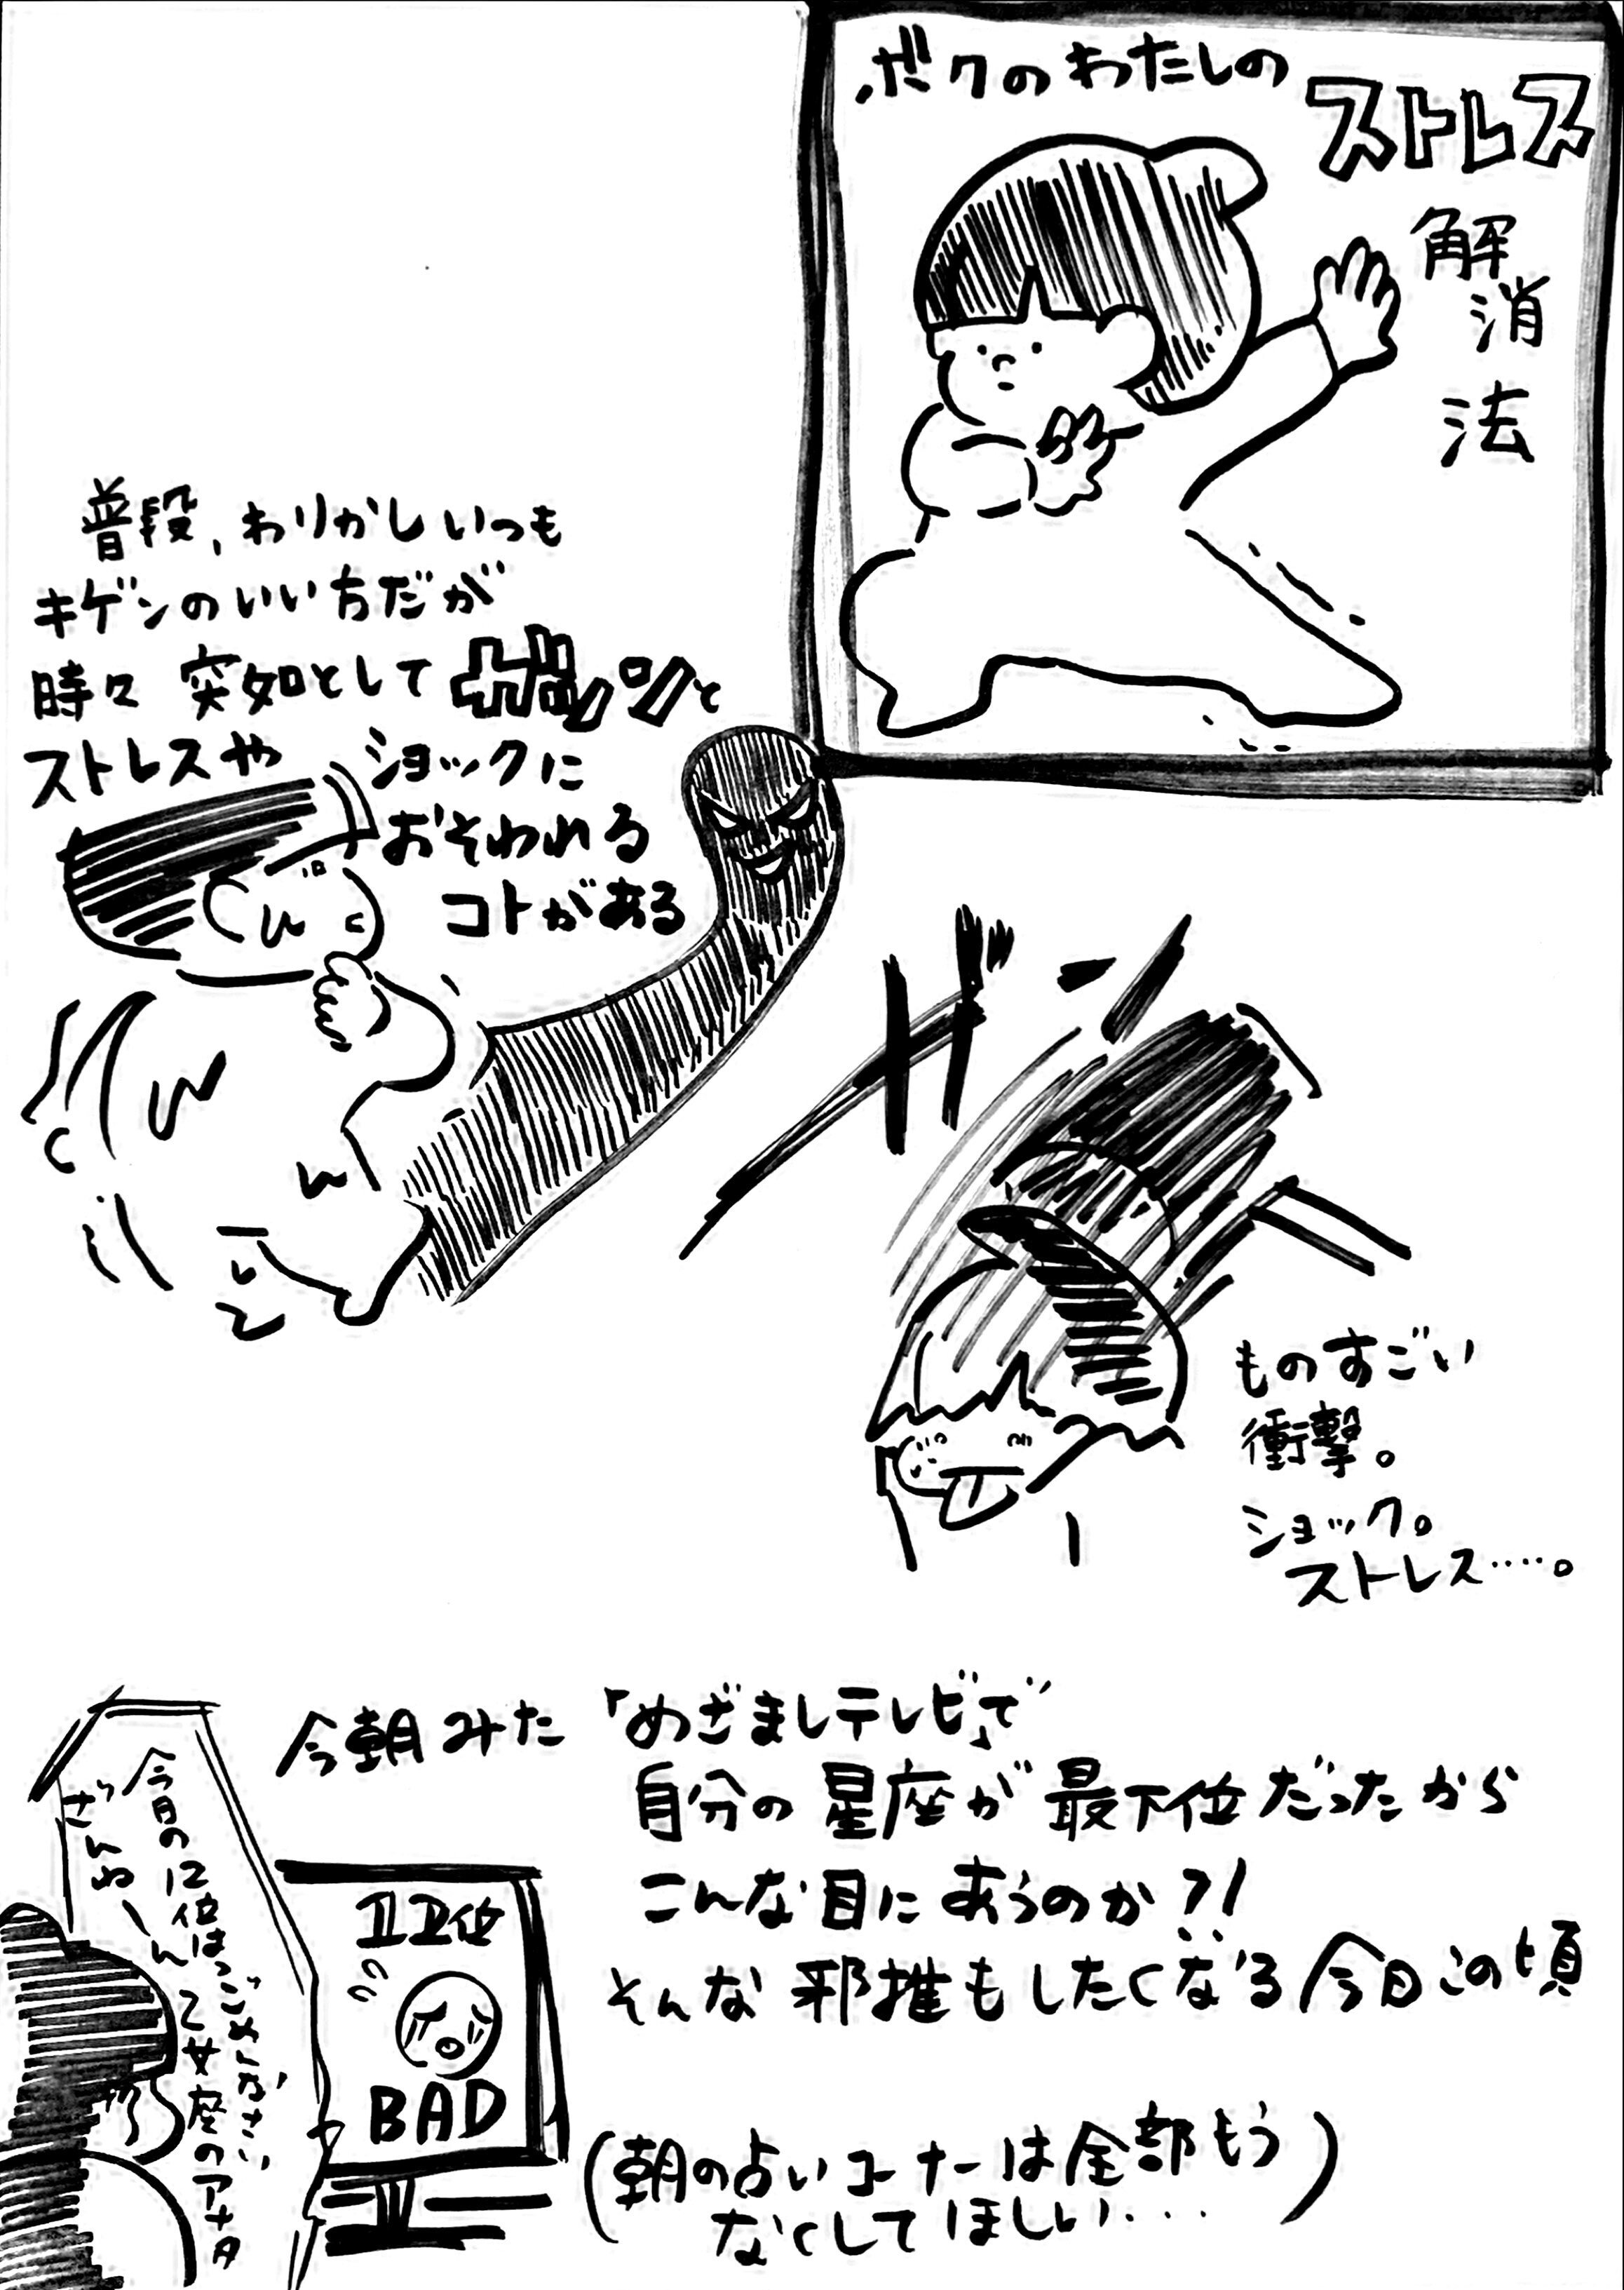 ボクのわたしの
ストレス
解
消
法
普段、わりかしいつも
キゲンのいい方だが
時々 突如として ガツンと
ストレスや ショックに
おそわれる
コトがある
ガーン
ものすごい
衝撃。
ショック。
ストレス……。
今朝みた「めざましテレビ」で
自分の星座が最下位だったから
こんな目にあうのか?!
そんな邪推もしたくなる今日この頃
ごめんなさい
今日の12位は 乙女座のアナタ
ざんねーん
12位
BAD
(朝の占いコーナーは全部もう
なくしてほしい….)